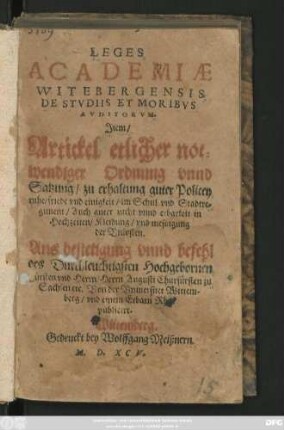 LEGES
ACADEMIÆ
WITEBERGENSIS
DE STVDIIS ET MORIBVS
AVDITORVM.
Item/
Artickel etlicher not-
wendiger Ordnung vnnd
Satzung/ zu erhaltung guter Policey
vnd einigkeit/ im Schul vnd Stadtre-
giment/ Auch guter zucht vnnd erbarkeit in
Hochzeiten/ Kleidung/ vnd messigung
der
Aus bestetigung vnnd befehl
des Durchleuchtigsten Hochgebornen
Fürsten vnd Herrn Herrn Augusti Churfürsten zu
Sachsen etc. Von der Vniuersitet Wittem-
berg/ vnd einem Erbarn
publicirt.
Wittemberg.
Gedruckt bey Wolffgang Meißnern.
M. D. XCV.
15